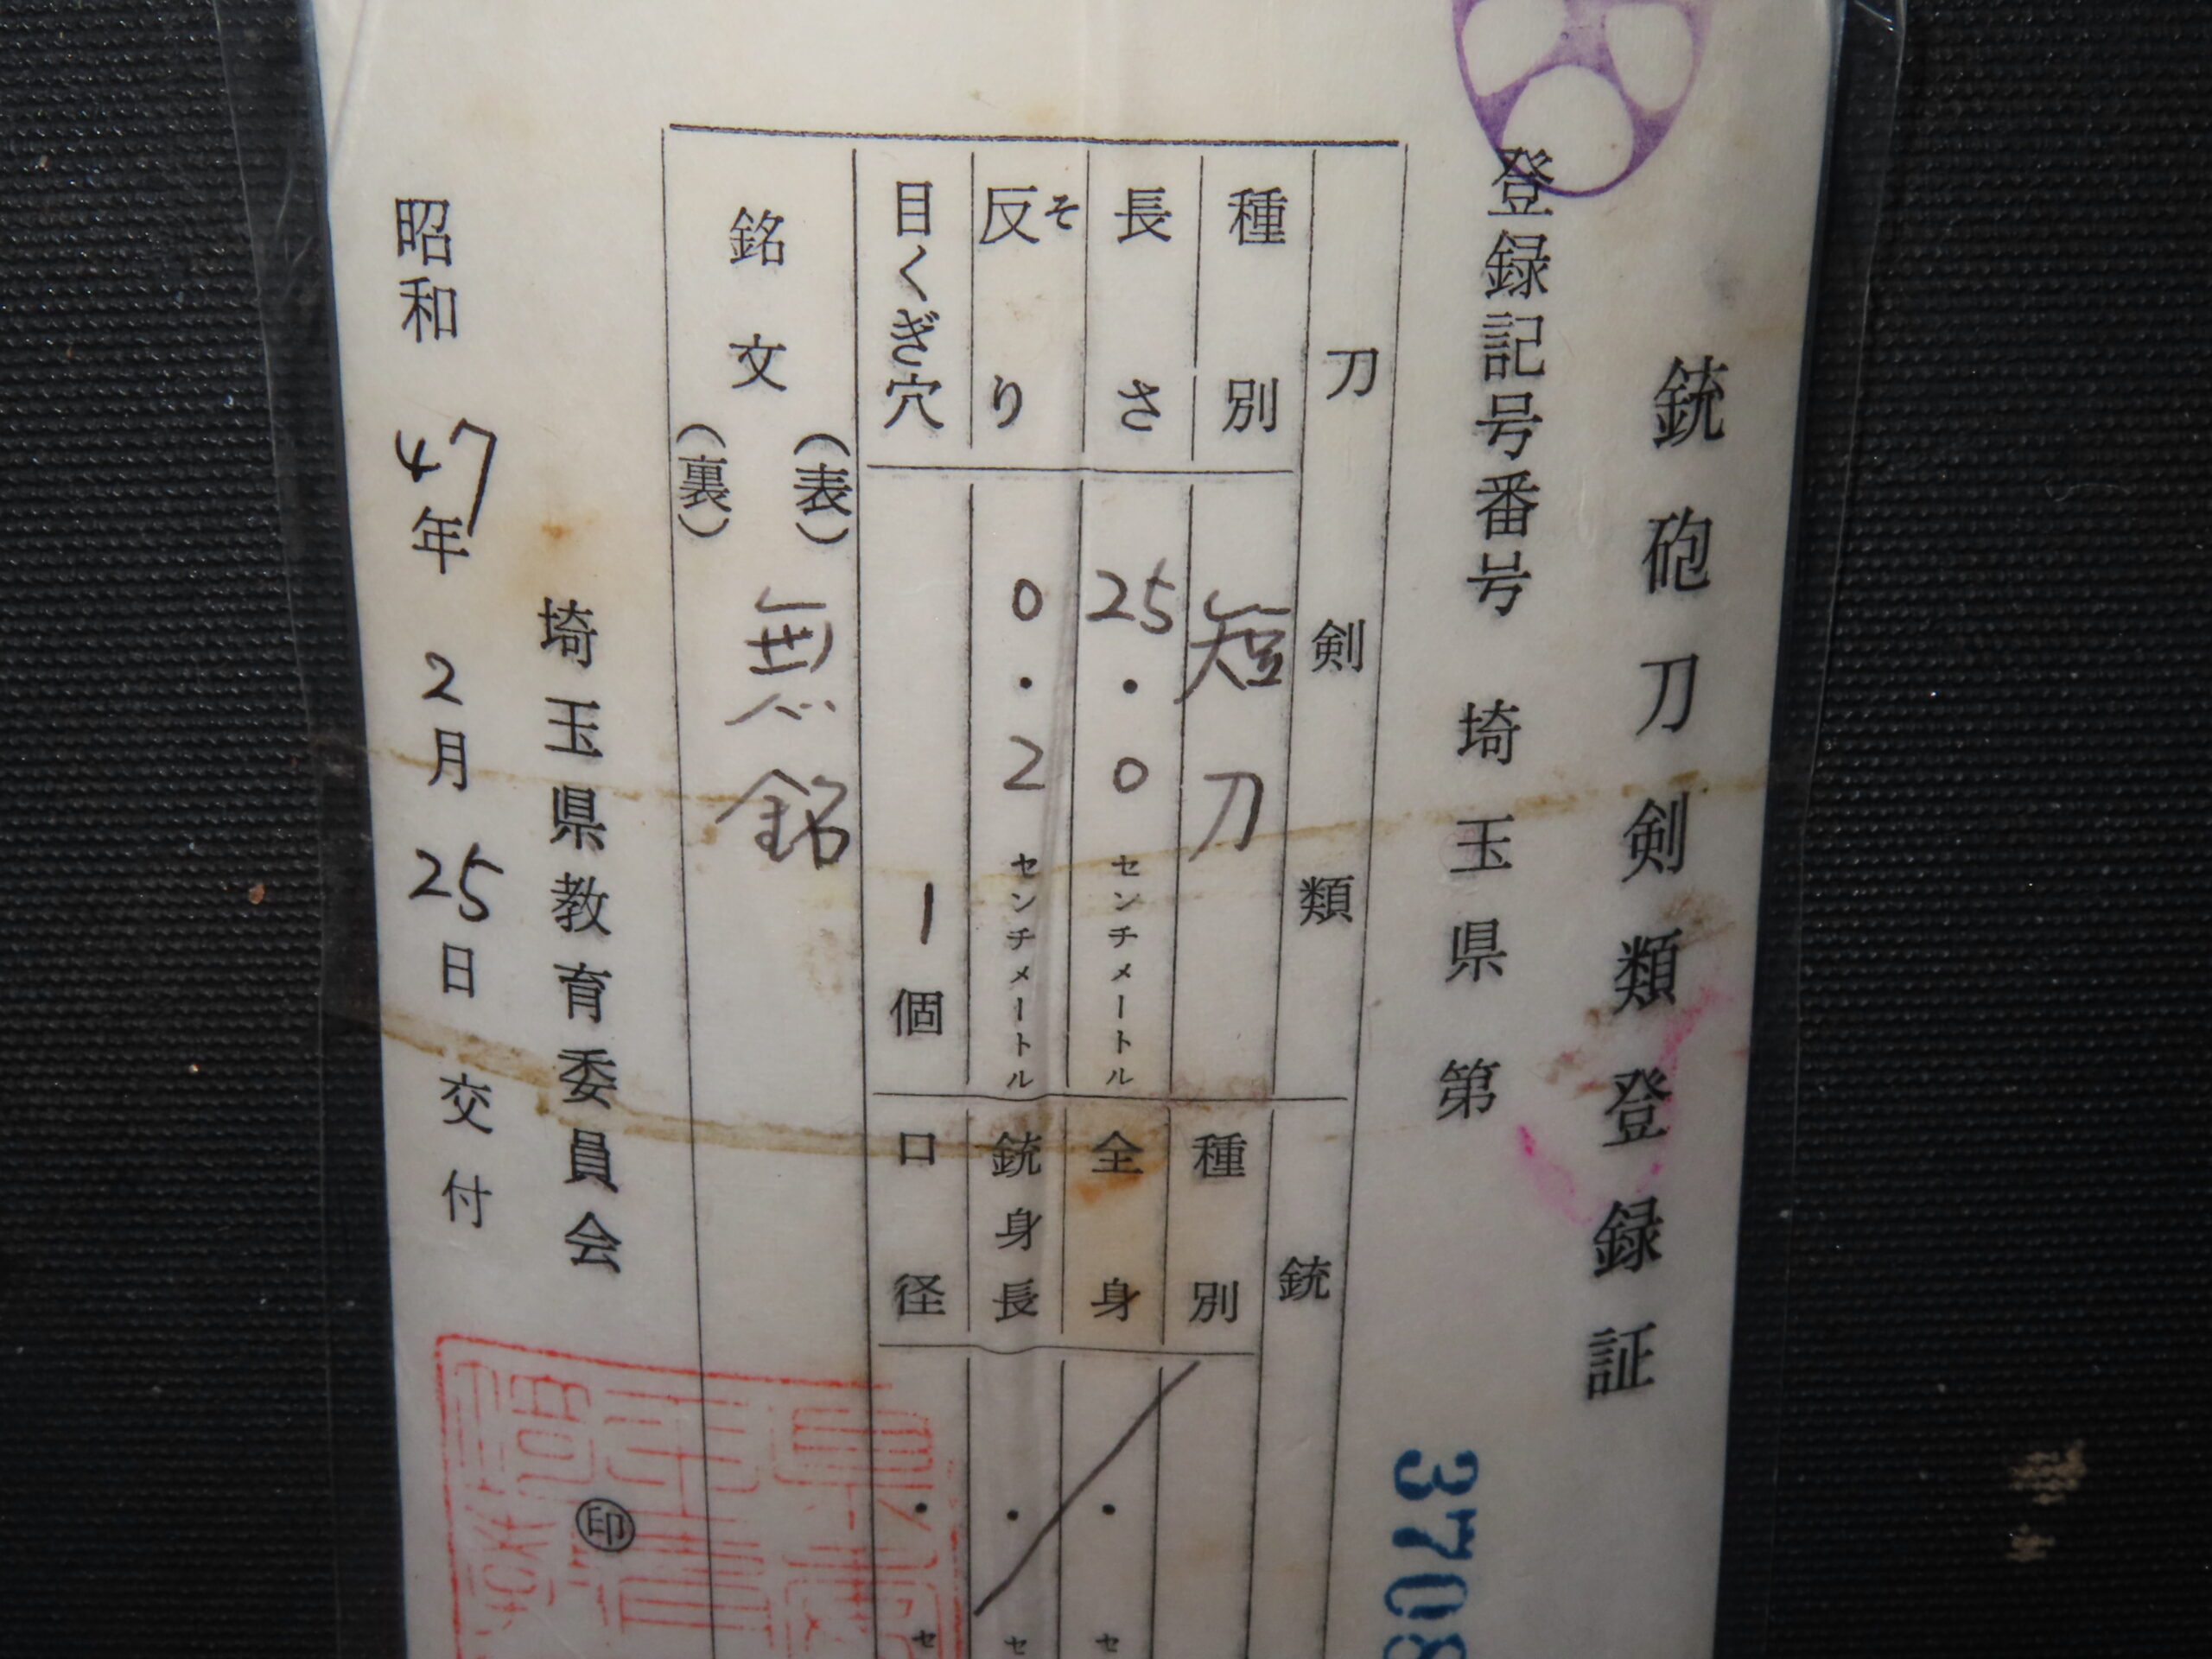 銃砲刀剣類登録証
登録記号番号 埼玉県 第 3708
刀剣類
種別 短刀
長さ 25.0 センチメートル
反り そ 0.2 センチメートル
目くぎ穴 1 個
銘文
(表) 無銘
(裏)
銃
種別
全身 ・ セ
銃身長 ・ セ
口径 ・ セ
埼玉県教育委員会 印
昭和 47年 2月 25日 交付